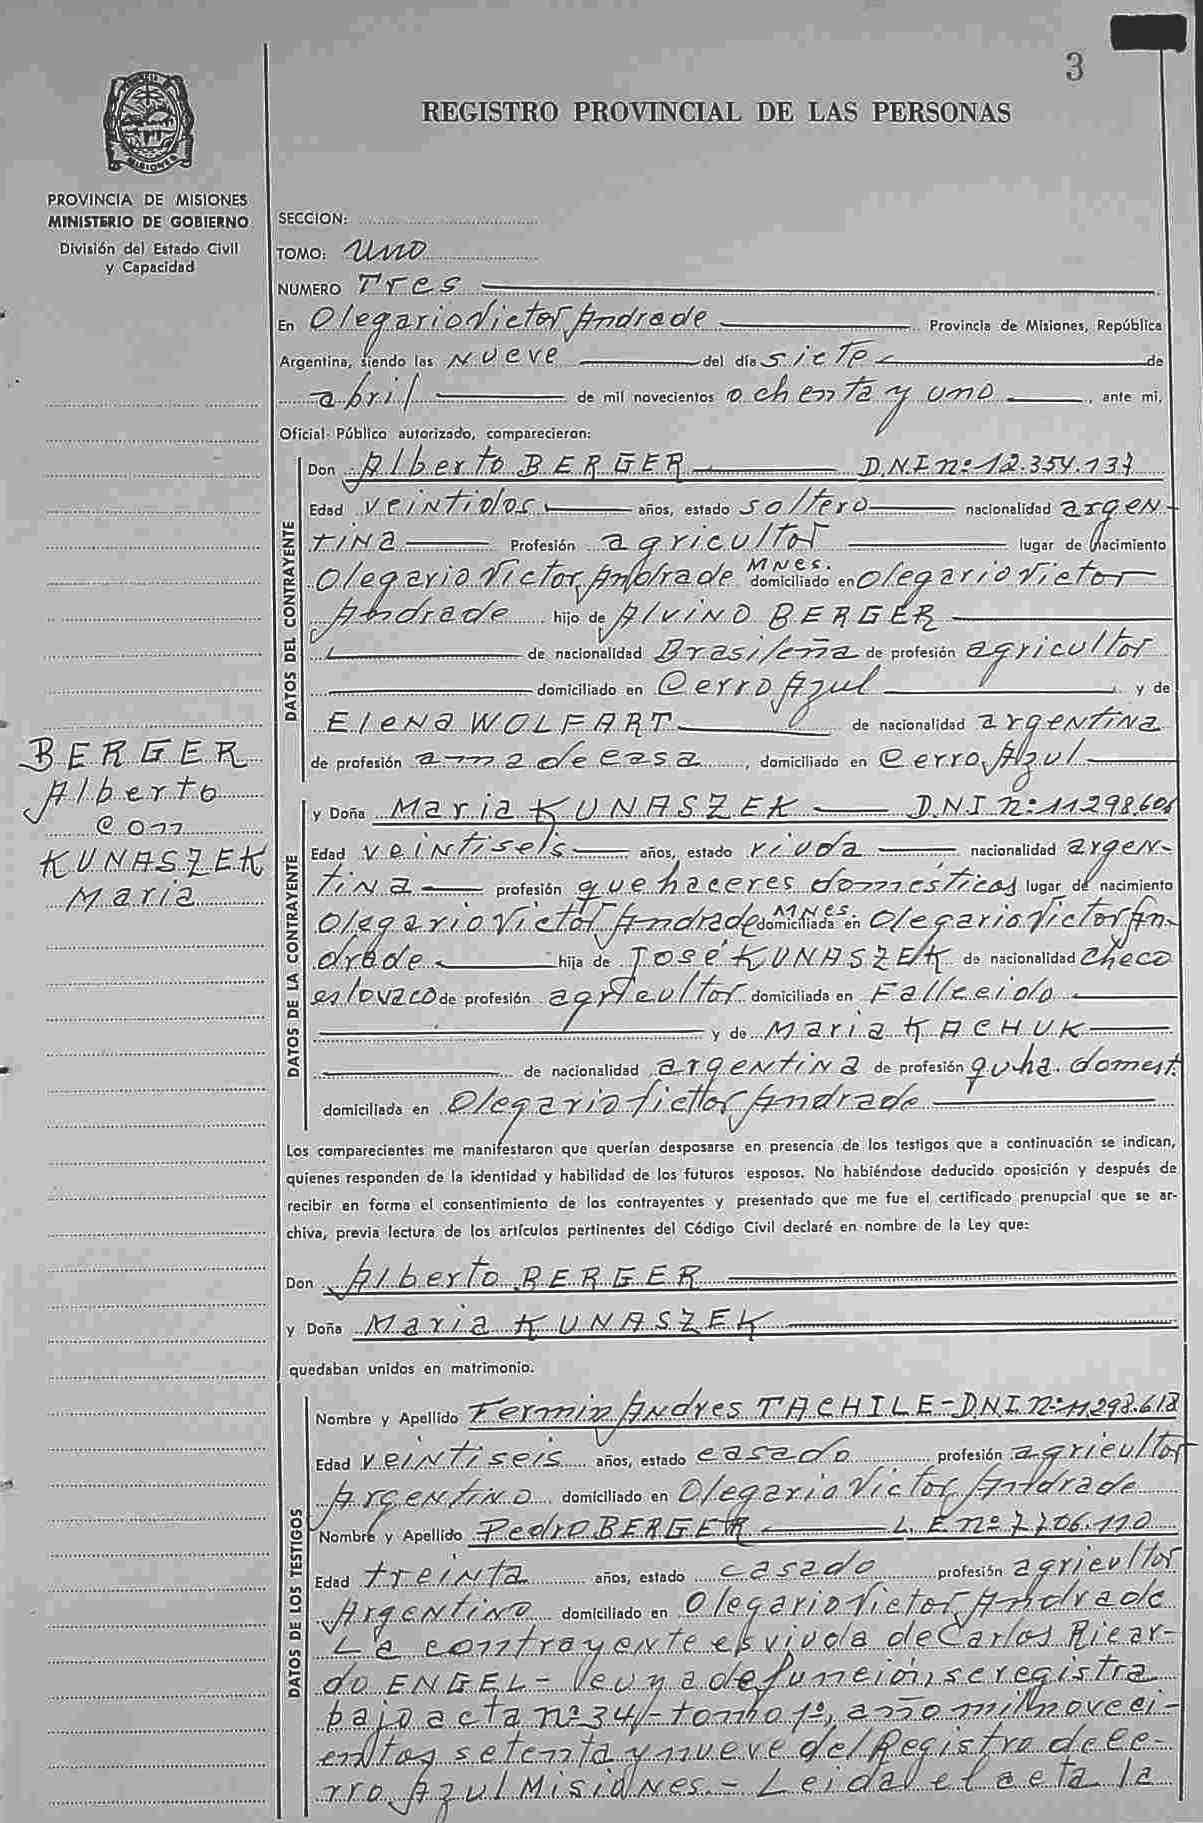 3
REGISTRO PROVINCIAL DE LAS PERSONAS
PROVINCIA DE MISIONES
MINISTERIO DE GOBIERNO
División del Estado Civil
y Capacidad
SECCION:
TOMO: Uno
NUMERO Tres
En Olegario Victor Andrade Provincia de Misiones, República
Argentina, siendo las Nueve del día siete de
abril de mil novecientos ochenta y uno, ante mi,
Oficial Público autorizado, comparecieron:
DATOS DEL CONTRAYENTE
Don Alberto BERGER D.N.I nº 12.354.137
Edad veintidos años, estado soltero nacionalidad argen-
tina Profesión agricultor lugar de nacimiento
Olegario Victor Andrade Mnes. domiciliado en Olegario Victor
Andrade hijo de Alvino BERGER
de nacionalidad Brasileña de profesión agricultor
domiciliado en Cerro Azul y de
Elena WOLFART de nacionalidad argentina
de profesión ama de casa, domiciliado en Cerro Azul
BERGER
Alberto
con
KUNASZEK
Maria
DATOS DE LA CONTRAYENTE
y Doña Maria KUNASZEK D.N.I nº 11.298.606
Edad veintiseis años, estado viuda nacionalidad argen-
tina profesión quehaceres domésticos lugar de nacimiento
Olegario Victor Andrade Mnes. domiciliada en Olegario Victor An-
drade hija de José KUNASZEK de nacionalidad checo
eslovaco de profesión agricultor domiciliada en Fallecido
y de Maria KACHUK
de nacionalidad argentina de profesión queha. domest.
domiciliada en Olegario Victor Andrade
Los comparecientes me manifestaron que querían desposarse en presencia de los testigos que a continuación se indican,
quienes responden de la identidad y habilidad de los futuros esposos. No habiéndose deducido oposición y después de
recibir en forma el consentimiento de los contrayentes y presentado que me fue el certificado prenupcial que se ar-
chiva, previa lectura de los artículos pertinentes del Código Civil declaré en nombre de la Ley que:
Don Alberto BERGER
y Doña Maria KUNASZEK
quedaban unidos en matrimonio.
DATOS DE LOS TESTIGOS
Nombre y Apellido Fermin Andres TACHILE - D.N.I nº 11.298.618
Edad veintiseis años, estado casado profesión agricultor
Argentino domiciliado en Olegario Victor Andrade
Nombre y Apellido Pedro BERGER L.E. nº 7.706.110
Edad treinta años, estado casado profesión agricultor
Argentino domiciliado en Olegario Victor Andrade
La contrayente es viuda de Carlos Ricar-
do ENGEL - cuya defunción, se registra
bajo acta nº 34/- tomo 1º, año mil noveci-
entos setenta y nueve del Registro de Ce-
rro Azul Misiones.- Leida el acta la